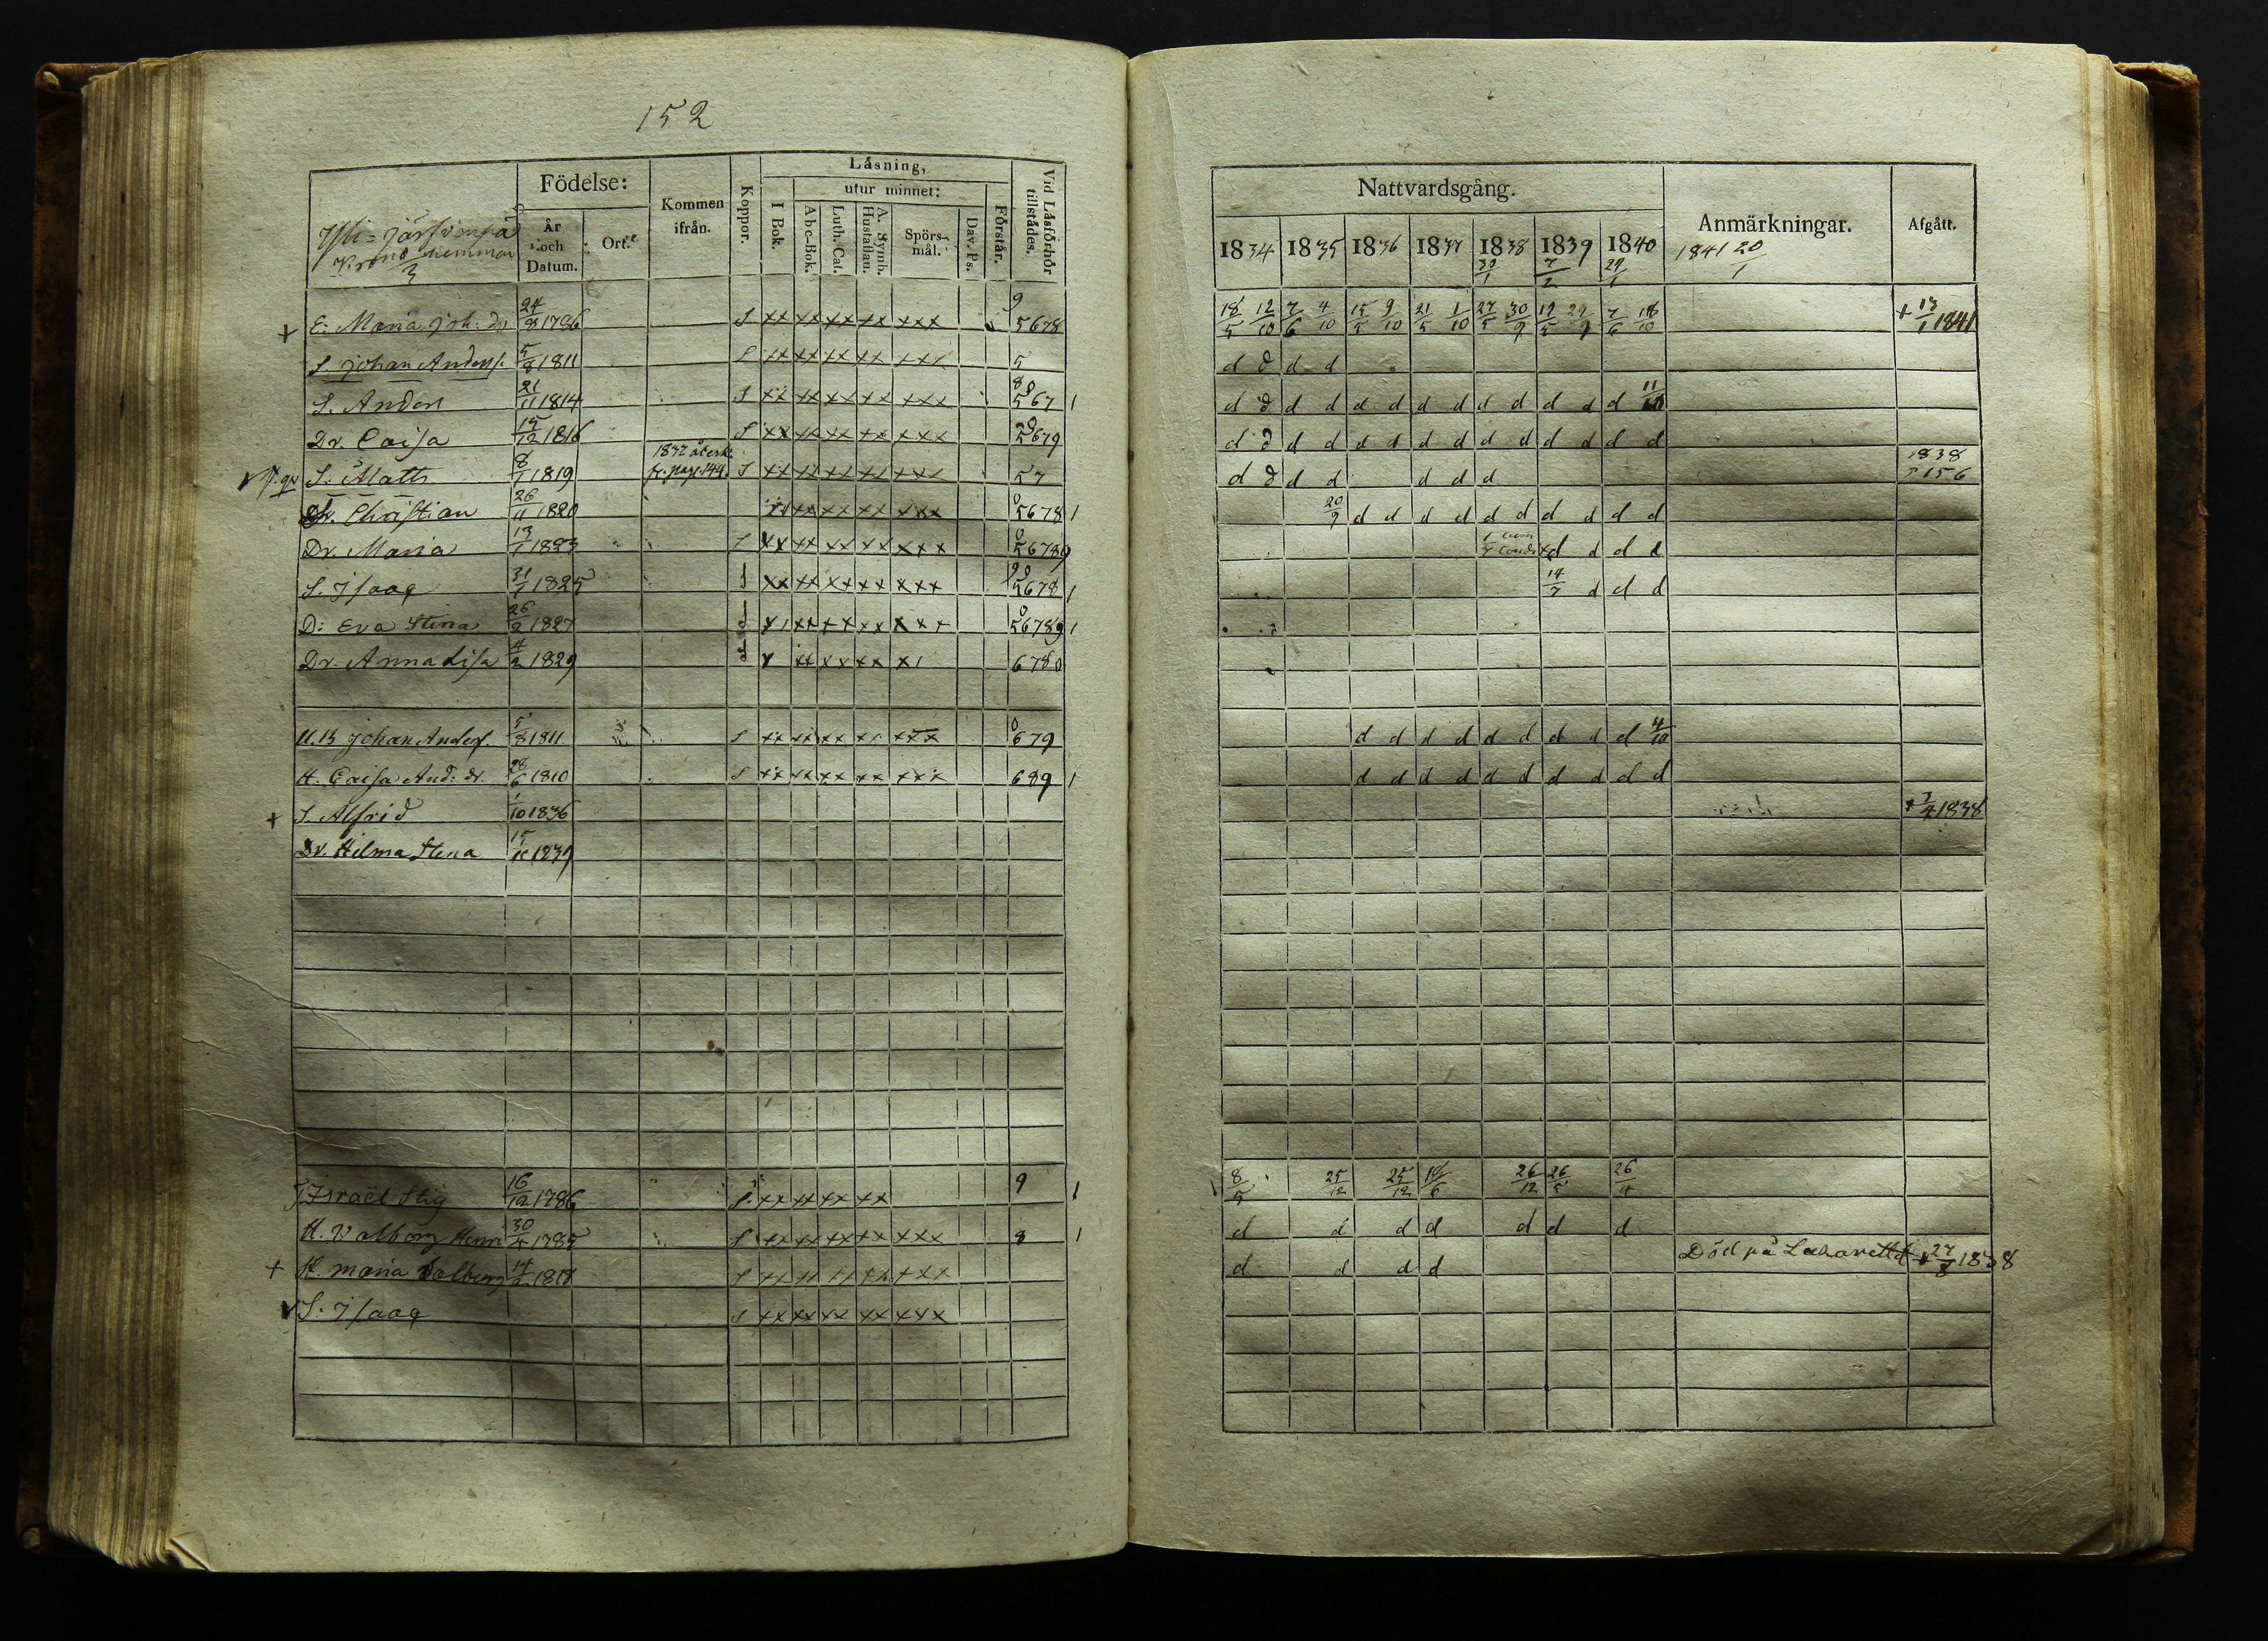 152
Läsning,
Födelse:
utur minnet:
Kommen ifrån.
Koppor.
I Bok.
Abc-Bok.
Luth. Cat.
A. Symb. Hustaflan.
Spörs-mål.
Dav. Ps.
Förstår.
Vid Läsförhör tillstädes.
År och Datum.
Ort.
Nattvardsgång.
Anmärkningar.
Afgått.
1834 1835 1836 1837 1838 1839 1840 1841 20/1
30/1 7/2 29/1
E: Maria Joh: dr 24/3 1786 S xx xx xx xx xxx 9 5678 18/5 12/10 7/6 4/10 15/5 9/10 21/5 1/10 27/5 30/9 19/5 29/9 7/6 18/10 + 13/1 1841
S. Johan Anderss. 5/8 1811 S xx xx xx xx xxx 5 d d d d
S. Anders 21/11 1814 S xx xx xx xx xxx 80 567 1 d d d d d d d d d d d d d 11/10
Dr. Caisa 15/12 1816 S xx xx xx xx xxx 5679 d d d d d d d d d d d d d d
S: Matts 8/7 1819 1837 återk. fr. pag. 144 S xx xx xx xx xxx 57 d d d d d d d 1838 p 156
Christian 26/11 1820 xx xx xx xx xxx 0 5678 1 20/9 d d d d d d d d d d
Dr. Maria 13/1 1823 xx xx xx xx xxx 0 56789 d d d d
S. Isaaq 31/7 1825 S xx xx xx xx xxx 90 5678 1 14/7 d d d
D: Eva Stina 26/2 1827 S x1 xx xx xx xxx 0 56789 1
Dr. Anna Lisa 4/2 1829 S x xx xx xx x1 6780
U.B Johan Anderss. 5/8 1811 S xx xx xx xx xxx 0 679 d d d d d d d d d 4/10
H. Caisa And: dr. 28/6 1810 S xx xx xx xx xxx 689 1 d d d d d d d d d d
+ S. Alfrid 1/10 1836 + 3/4 1838
Dr. Hilma Stina 15/11 1839
Israël Stig 16/12 1786 S. xx xx xx xx 9 1 8/5 25/12 25/12 18/6 26/12 26/5 26/4
H. Valborg Henr 30/4 1785 S xx xx xx xx xxx 8 1 d d d d d d d
+ H. Maria Valborg 14/2 1817 S xx xx xx xx xxx d d d d Död på Lazarettet + 27/8 1838
S: Isaaq S xx xx xx xx xxx